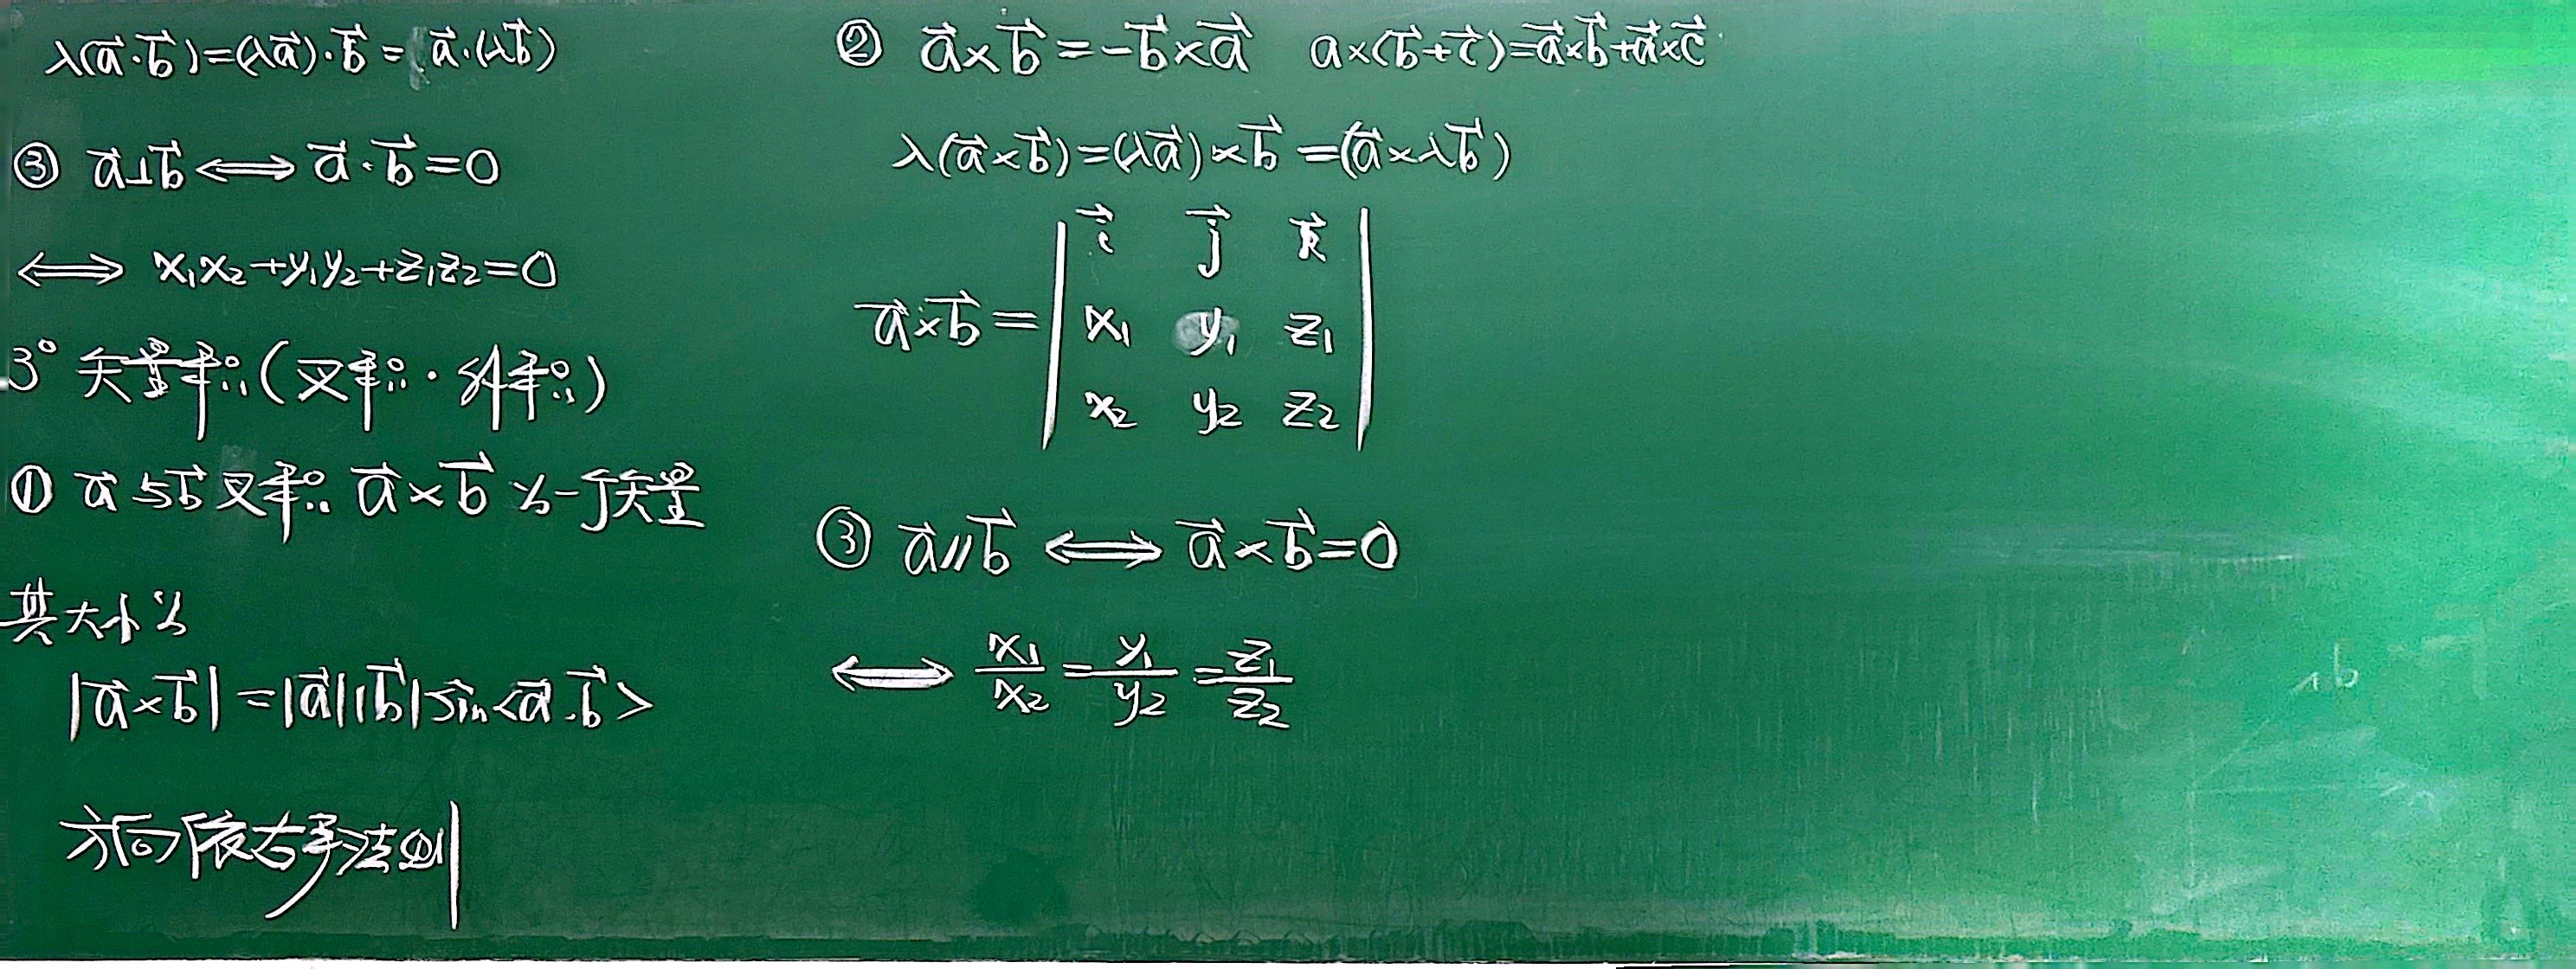 λ(a⃗·b⃗)=(λa⃗)·b⃗=a⃗·(λb⃗)
③ a⃗⊥b⃗⟺a⃗·b⃗=0
⟺ x₁x₂+y₁y₂+z₁z₂=0
3° 矢量积(叉积·外积)
① a⃗与b⃗叉积 a⃗×b⃗为一个矢量
其大小为
|a⃗×b⃗|=|a⃗||b⃗|sin<a⃗.b⃗>
方向依右手法则
② a⃗×b⃗=-b⃗×a⃗ a×(b⃗+c⃗)=a⃗×b⃗+a⃗×c⃗
λ(a⃗×b⃗)=(λa⃗)×b⃗=(a⃗×λb⃗)
a⃗×b⃗=| i⃗ j⃗ k⃗ |
| x₁ y₁ z₁ |
| x₂ y₂ z₂ |
③ a⃗//b⃗⟺a⃗×b⃗=0
⟺ x₁/x₂=y₁/y₂=z₁/z₂